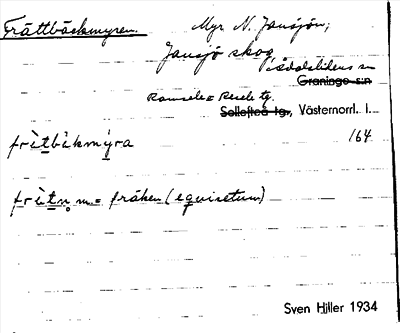 Frättbäckmyren. Myr N. Jansjön;
Jansjö skog
i Ådalslidens sn
Graninge s:n
Ramsele o Resele tg.
Sollefteå tg., Västernorrl. l.
frètbäkmýra 164
frètn m. = fräken (equisetum)
Sven Hiller 1934